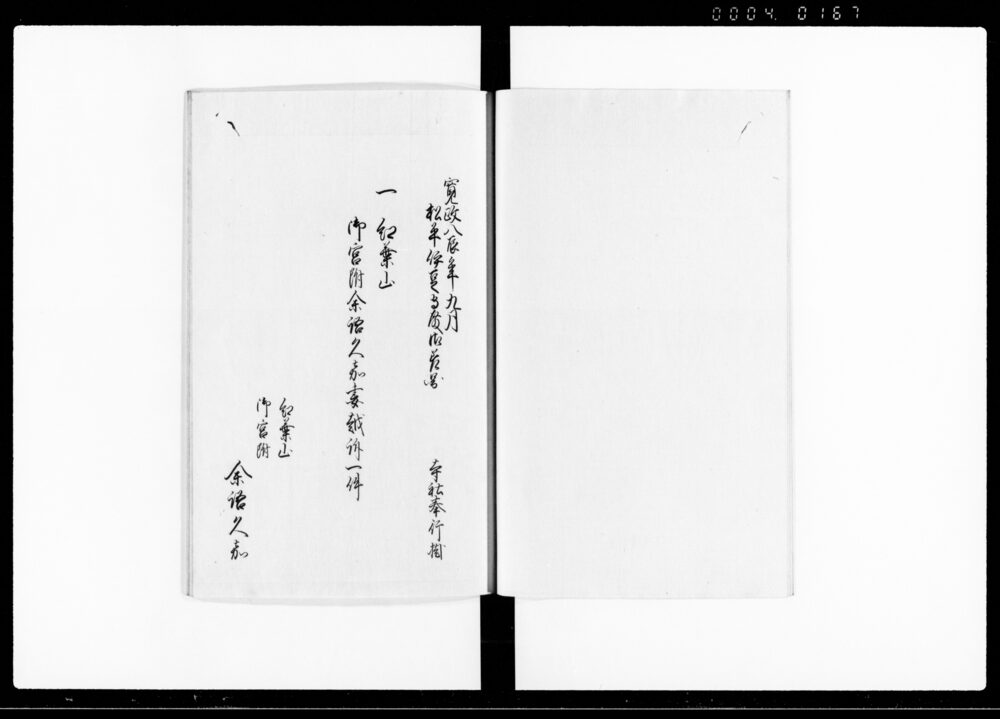 0004. 0167
寛政八辰年九月
松平伊豆守殿御差図
寺社奉行掛
一 紅葉山
御宮附余語久嘉妻越訴一件
紅葉山
御宮附
余語久嘉